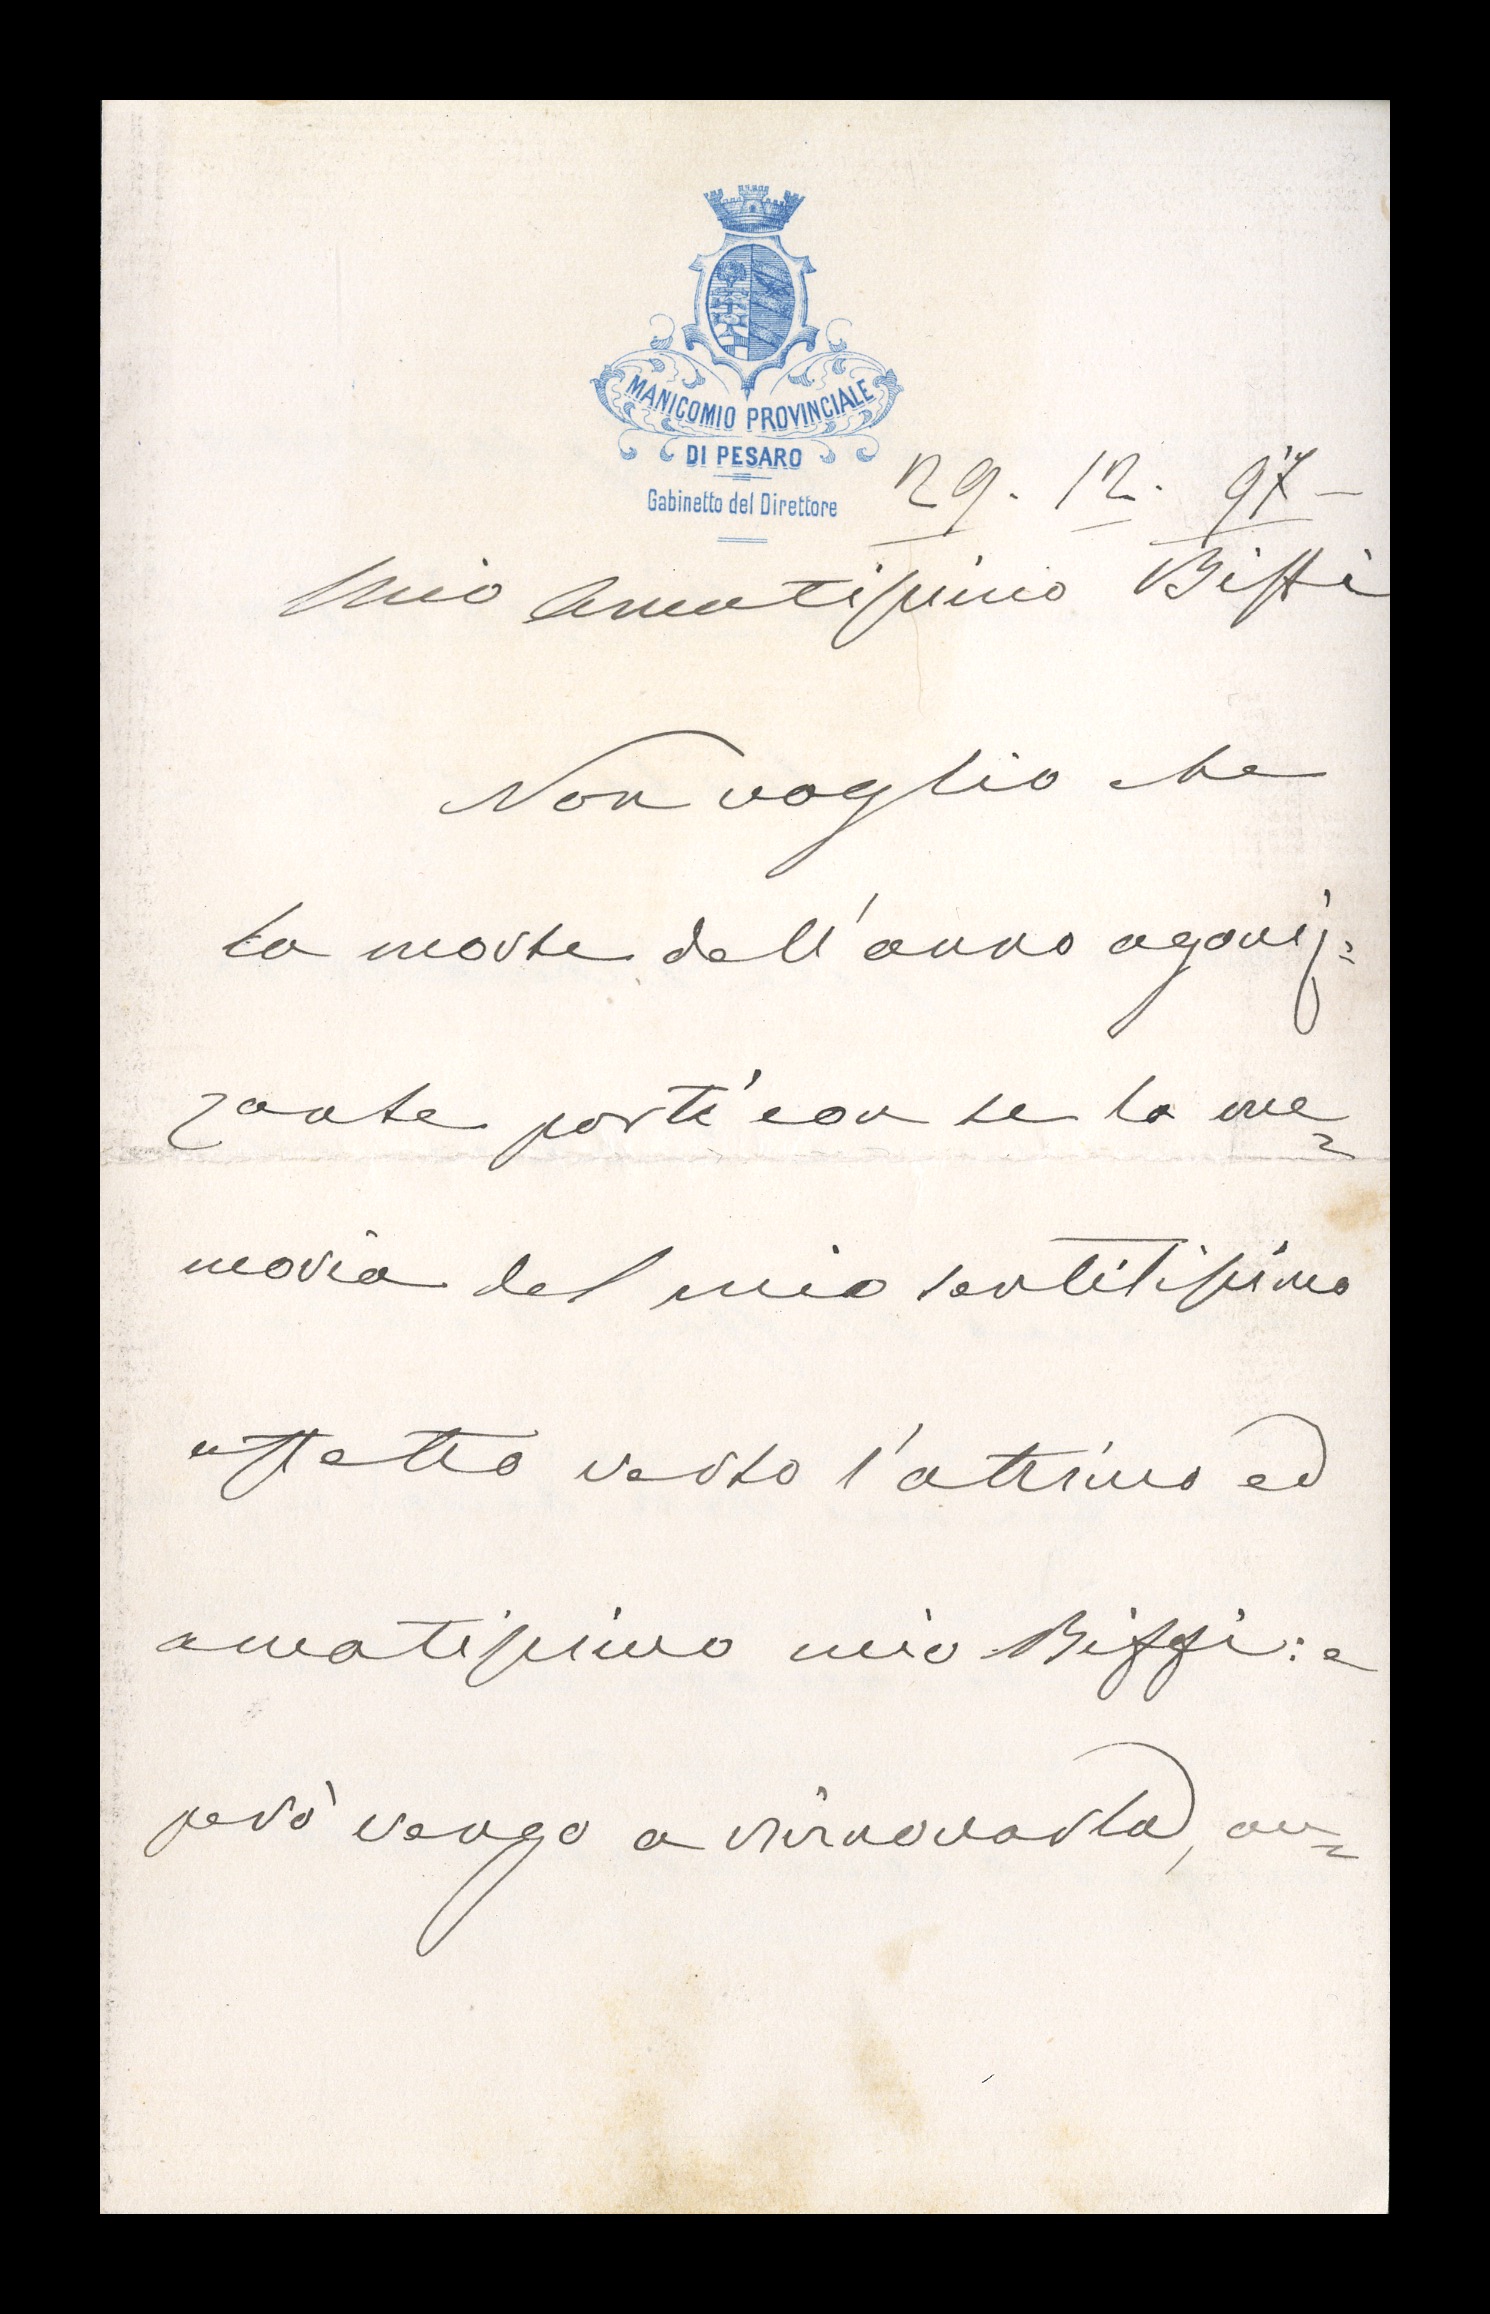 MANICOMIO PROVINCIALE
DI PESARO
Gabinetto del Direttore
29. 12. 97 -
Mio Amatissimo Biffi
Non voglio che
la morte dell'anno agoniz=
zante porti con se la me=
moria del mio sentitissimo
affetto verso l'ottimo ed
amatissimo mio Biffi: e
però vengo a rinnovarla, an=